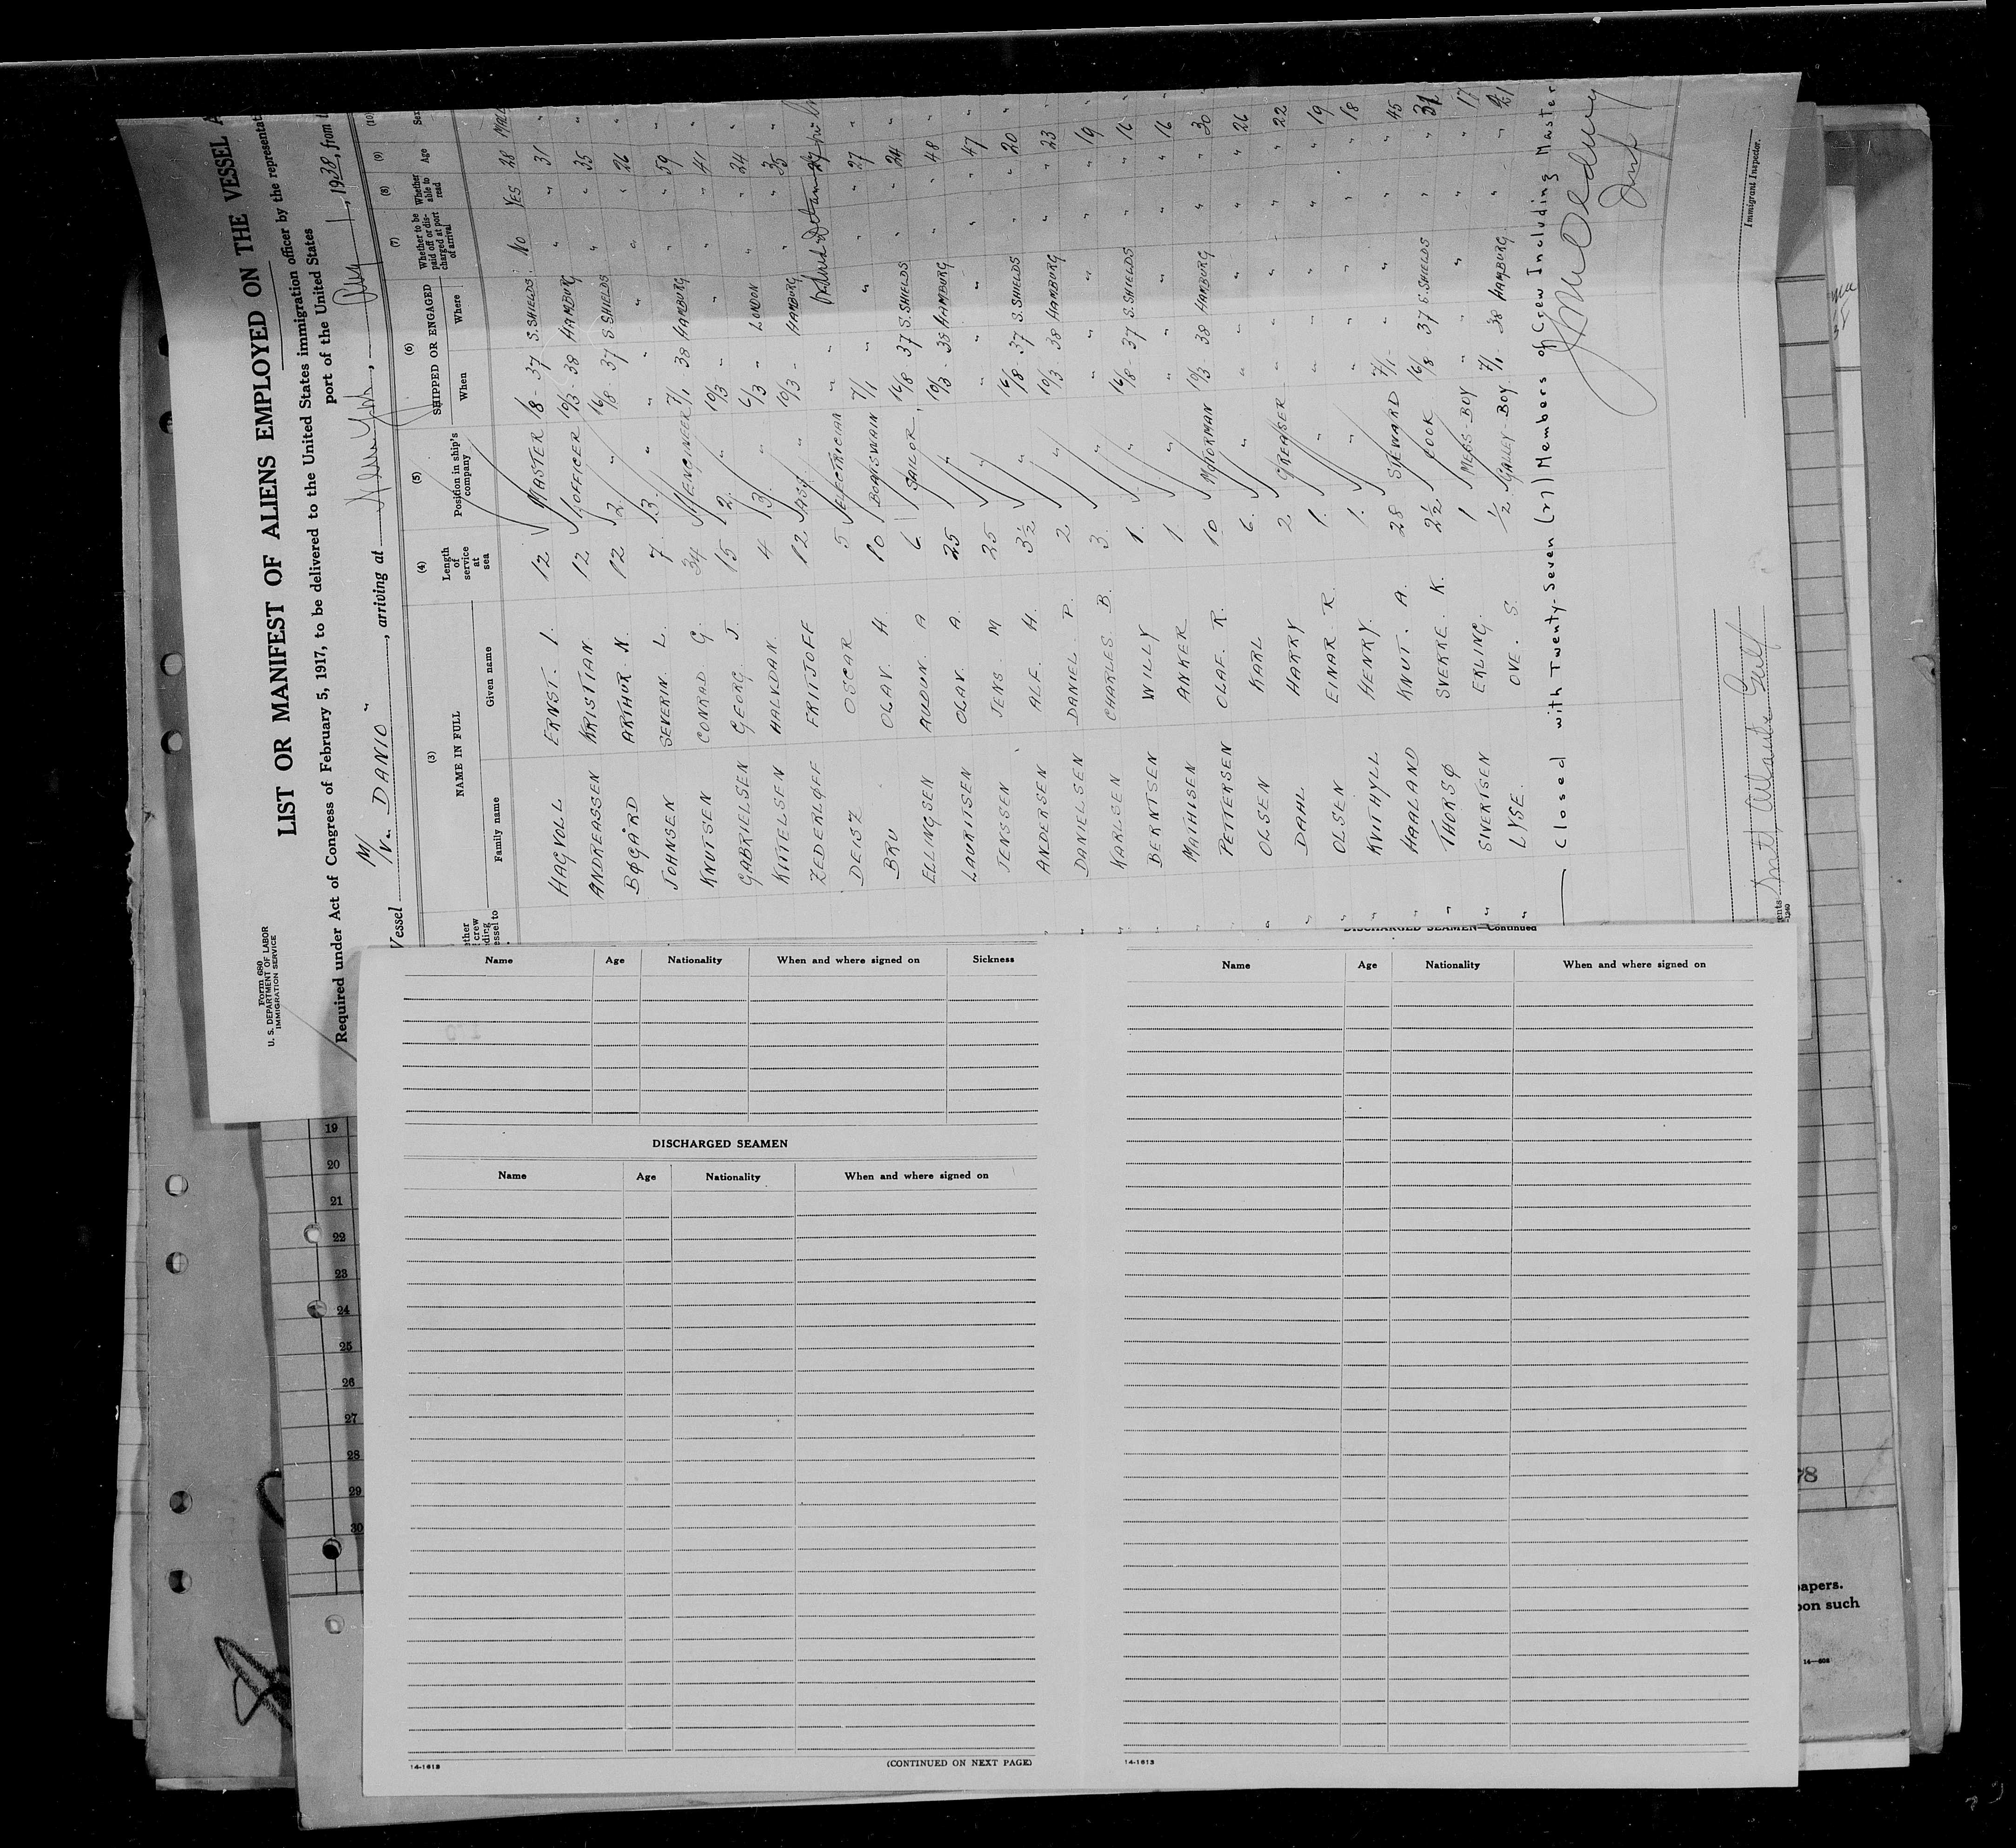 Form 680
U. S. DEPARTMENT OF LABOR
IMMIGRATION SERVICE
LIST OR MANIFEST OF ALIENS EMPLOYED ON THE VESSEL A
Required under Act of Congress of February 5, 1917, to be delivered to the United States immigration officer by the representat
port of the United States
Vessel M/V. DANIO, arriving at New York, 1938, from
(3) (4) (5) (6) (7) (8) (9) (10)
NAME IN FULL
Family name Given name
Length of service at sea
Position in ship's company
SHIPPED OR ENGAGED
When Where
Whether to be paid off or discharged at port of arrival
Whether able to read
Age
Sex
HAGVOLL ERNST. I. 12 MASTER 1/8 - 37 S. SHIELDS. NO YES 28
ANDREASSEN KRISTIAN. 12 1. OFFICER 10/3 - 38 HAMBURG " " 31 "
BØGÅRD ARTHUR. N. 12 2. " 16/8 37 S SHIELDS " " 35 "
JOHNSEN SEVERIN L. 7 3. " " " " " 26 "
KNUTSEN CONRAD G. 34 1 ENGINEER 7/1 38 HAMBURG " " 59 "
GABRIELSEN GEORG J. 15 2. " 10/3 " " " " 41 "
KITTELSEN HALVDAN 4 3. " 6/3 " LONDON " " 24 "
ZEDERLØFF FRITJOFF 12 ASS. " 10/3 - HAMBURG " " 35 "
DEISZ OSCAR 5 ELECTRICIAN " " 27
BRU OLAV. H. 10 BOATSWAIN 7/1 " " " " 27 "
ELLINGSEN AUDUN. A 6 SAILOR. 16/8 37 S. SHIELDS " " 24 "
LAURITSEN OLAV. A. 25 " 10/3 - 38 HAMBURG " " 48 "
JENSSEN JENS. M 25 " " " " " 47 "
ANDERSEN ALF. H. 3½ " 16/8 - 37 S. SHIELDS " " 20 "
DANIELSEN DANIEL. P. 2 " 10/3 38 HAMBURG " " 23 "
KARLSEN CHARLES. B. 3. " " " " " 19 "
BERNTSEN WILLY 1. " 16/8 - 37 S. SHIELDS " " 16 "
MATHISEN ANKER 1 " " " " " 16 "
PETTERSEN OLAF. R. 10 MOTORMAN 10/3 - 38 HAMBURG " " 30 "
OLSEN KARL 6. " " " " " 26 "
DAHL HARRY 2. GREASER " " " " 22 "
OLSEN EINAR. R. 1. " " " " " 19
KVITHYLL HENRY. 1. " " " " " 18
HAALAND KNUT. A. 28 STEWARD 7/1 - " " " 45
THORSØ SVERRE. K. 2½ COOK 16/8 37 S. SHIELDS " " 31
SIVERTSEN ERLING. 1 MESS-BOY " " " " 17
LYSE. OVE. S. ½ GALLEY-BOY 7/1 - 38 HAMBURG " " 21
Closed with Twenty-Seven (27) Members of Crew Including Master
Immigrant Inspector.
Name Age Nationality When and where signed on Sickness
DISCHARGED SEAMEN
Name Age Nationality When and where signed on
(CONTINUED ON NEXT PAGE)
14-1613
DISCHARGED SEAMEN—Continued
Name Age Nationality When and where signed on
14-1613
19
20
21
22
23
24
25
26
27
28
29
30
apers.
on such